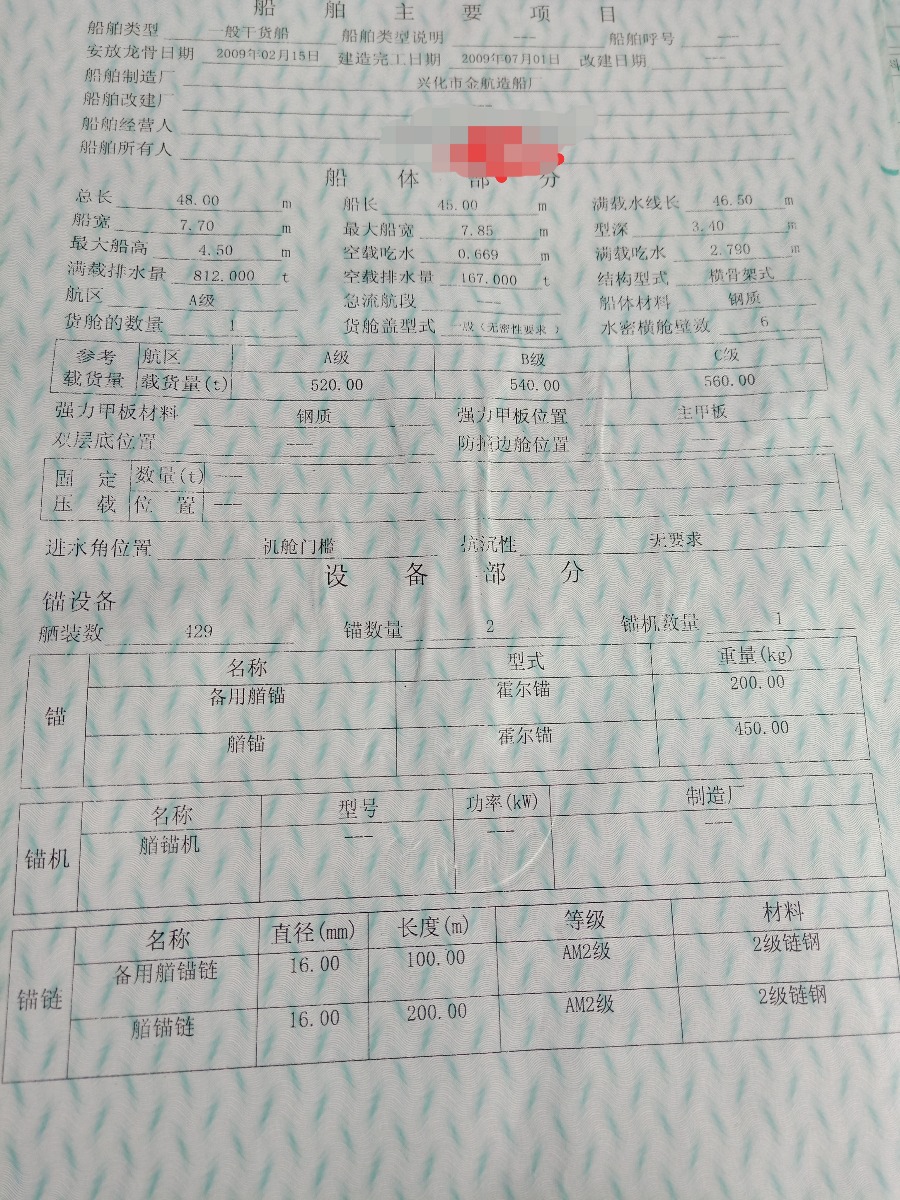 船 舶 主 要 项 目
船舶类型 一般干货船 船舶类型说明 --- 船舶呼号 ---
安放龙骨日期 2009年02月15日 建造完工日期 2009年07月01日 改建日期 ---
船舶制造厂 兴化市金航造船厂
船舶改建厂 ---
船舶经营人
船舶所有人
船 体 部 分
总长 48.00 m 船长 45.00 m 满载水线长 46.50 m
船宽 7.70 m 最大船宽 7.85 m 型深 3.40 m
最大船高 4.50 m 空载吃水 0.669 m 满载吃水 2.790 m
满载排水量 812.000 t 空载排水量 167.000 t 结构型式 横骨架式
航区 A级 急流航段 --- 船体材料 钢质
货舱的数量 1 货舱盖型式 一般（无密性要求） 水密横舱壁数 6
参考 航区 A级 B级 C级
载货量 载货量(t) 520.00 540.00 560.00
强力甲板材料 钢质 强力甲板位置 主甲板
双层底位置 --- 防撞边舱位置 ---
固 定 数量(t) ---
压 载 位 置 ---
进水角位置 机舱门槛 抗沉性 无要求
设 备 部 分
锚设备
舾装数 429 锚数量 2 锚机数量 1
锚 名称 型式 重量(kg)
备用艏锚 霍尔锚 200.00
艏锚 霍尔锚 450.00
锚机 名称 型号 功率(kW) 制造厂
艏锚机 --- --- ---
锚链 名称 直径(mm) 长度(m) 等级 材料
备用艏锚链 16.00 100.00 AM2级 2级链钢
艏锚链 16.00 200.00 AM2级 2级链钢